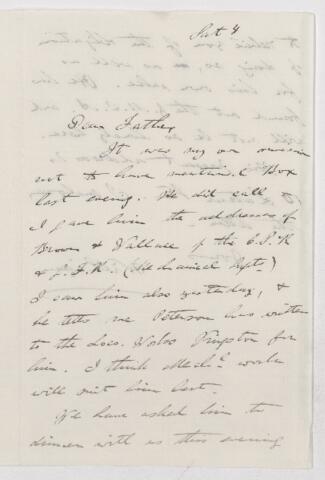 Sat 4
Dear Father
It was my own omission
not to have mentioned Box
last evening. He did call
I gave him the addresses of
Brown & Wallace of the C.P.R
& G.T.R. (Mechanical Depts)
I saw him also yesterday, &
he tells me Peterson has written
to the Loco. Works Kingston for
him. I think Mechl. works
will suit him best.
We have asked him to
dinner with us this evening